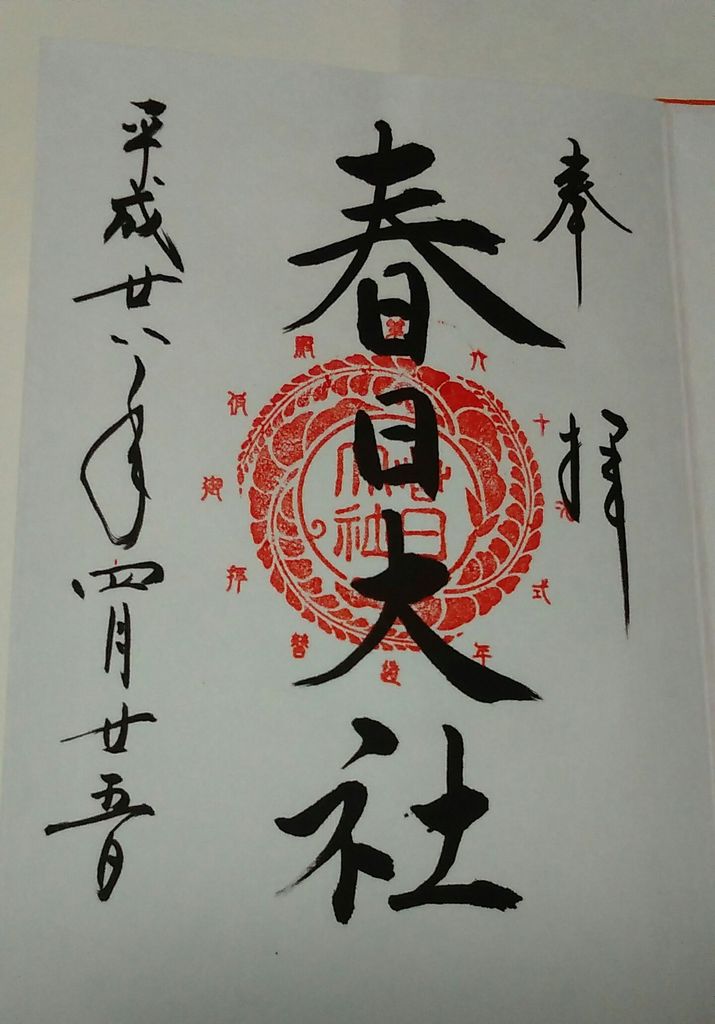 奉拝
春日大社
平成廿八年四月廿五日
春日大社
第六十次式年造替拝御仮殿